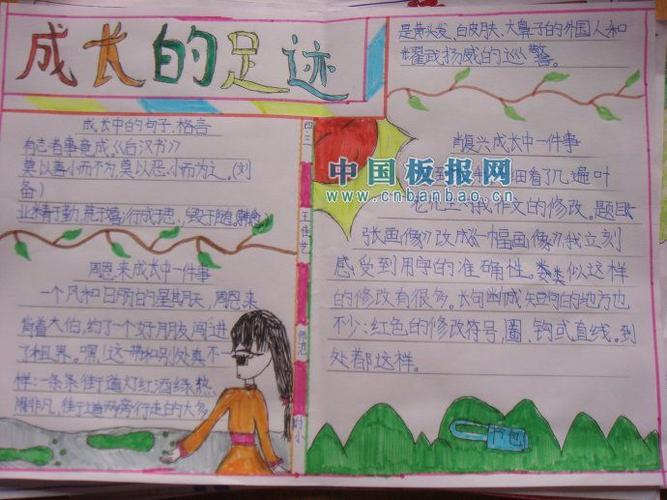 成长的足迹
成长中的句子、格言
有志者事竟成《后汉书》
莫以善小而不为,莫以恶小而为之。(刘
备)
业精于勤,荒于嬉;行成于思,毁于随。韩愈
周恩来成长中一件事
一个风和日丽的星期天,周恩来
背着大伯,约了一个好朋友闯进
了租界。嘿!这一带和别处真不一
样:一条条街道灯红酒绿,热
闹非凡,街道两旁行走的大多
四三
王佳艺
师范
附小
是黄头发、白皮肤、大鼻子的外国人和
耀武扬威的巡警。
肖复兴成长中一件事
细看了几遍叶
老先生对我作文的修改。题目
张画像》改成《一幅画像》,我立刻
感受到用字的准确性。类似这样
的修改有很多。长句断成短句的地方也
不少:红色的修改符号,圈、钩或直线。到
处都这样。
中国板报网
www.cnbanbao.cn